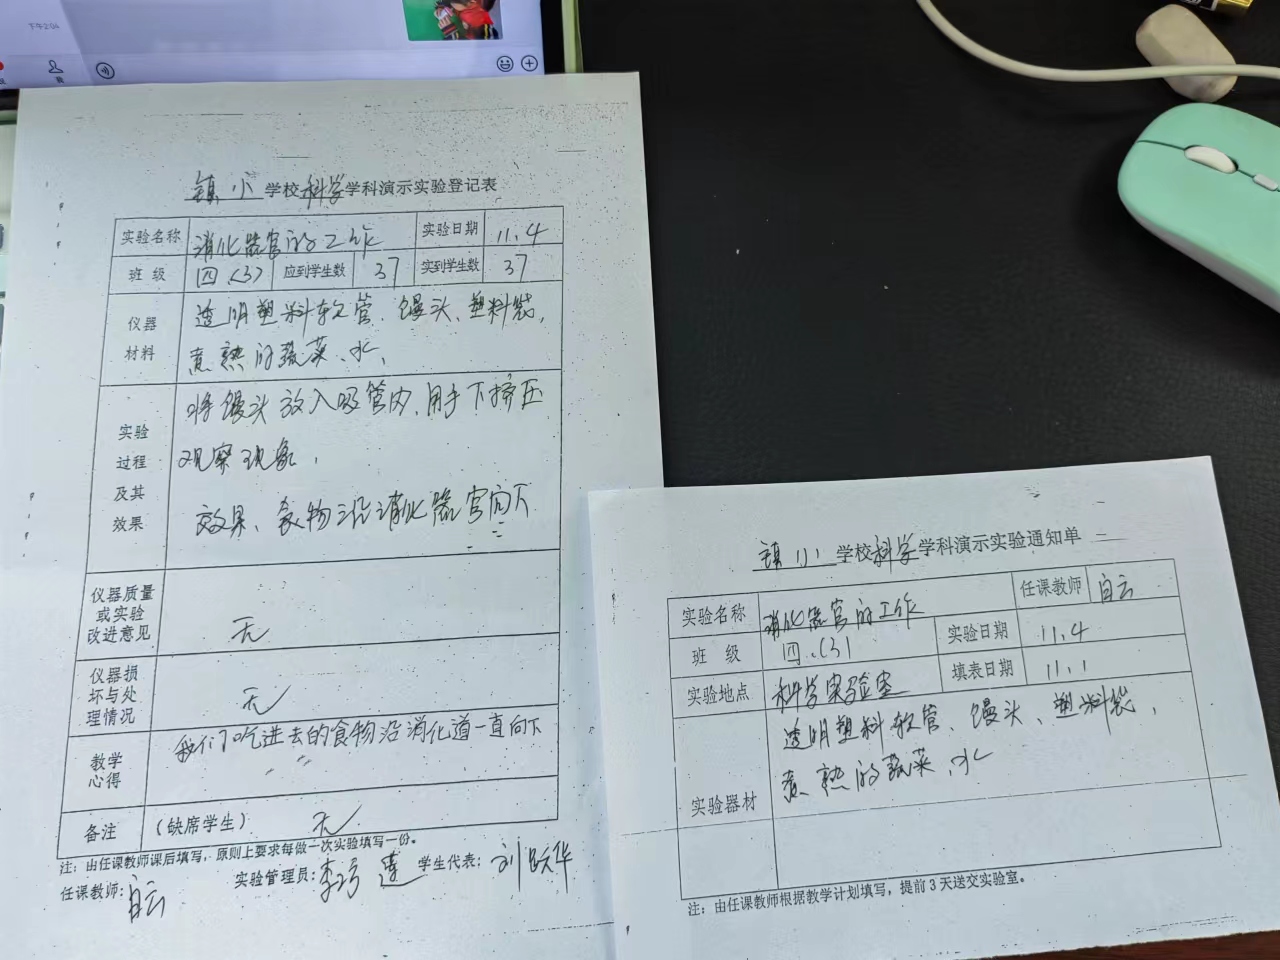 下午2:04
镇小学校科学学科演示实验登记表
实验名称 消化器官的工作 实验日期 11.4
班级 四.(3) 应到学生数 37 实到学生数 37
仪器材料 透明塑料软管、馒头、塑料袋,
煮熟的蔬菜、水、
实验过程及其效果 将馒头放入吸管内,用手下挤压
观察现象,
效果、食物沿消化器官向下
仪器质量或实验改进意见 无
仪器损坏与处理情况 无
教学心得 我们吃进去的食物沿消化道一直向下
备注 (缺席学生) 无
注:由任课教师课后填写,原则上要求每做一次实验填写一份。
任课教师:自云 实验管理员: 学生代表:
镇小学校科学学科演示实验通知单
实验名称 消化器官的工作 任课教师 自云
班级 四.(3) 实验日期 11.4
实验地点 科学实验室 填表日期 11.1
实验器材 透明塑料软管、馒头、塑料袋,
煮熟的蔬菜、水
注:由任课教师根据教学计划填写,提前3天送交实验室。